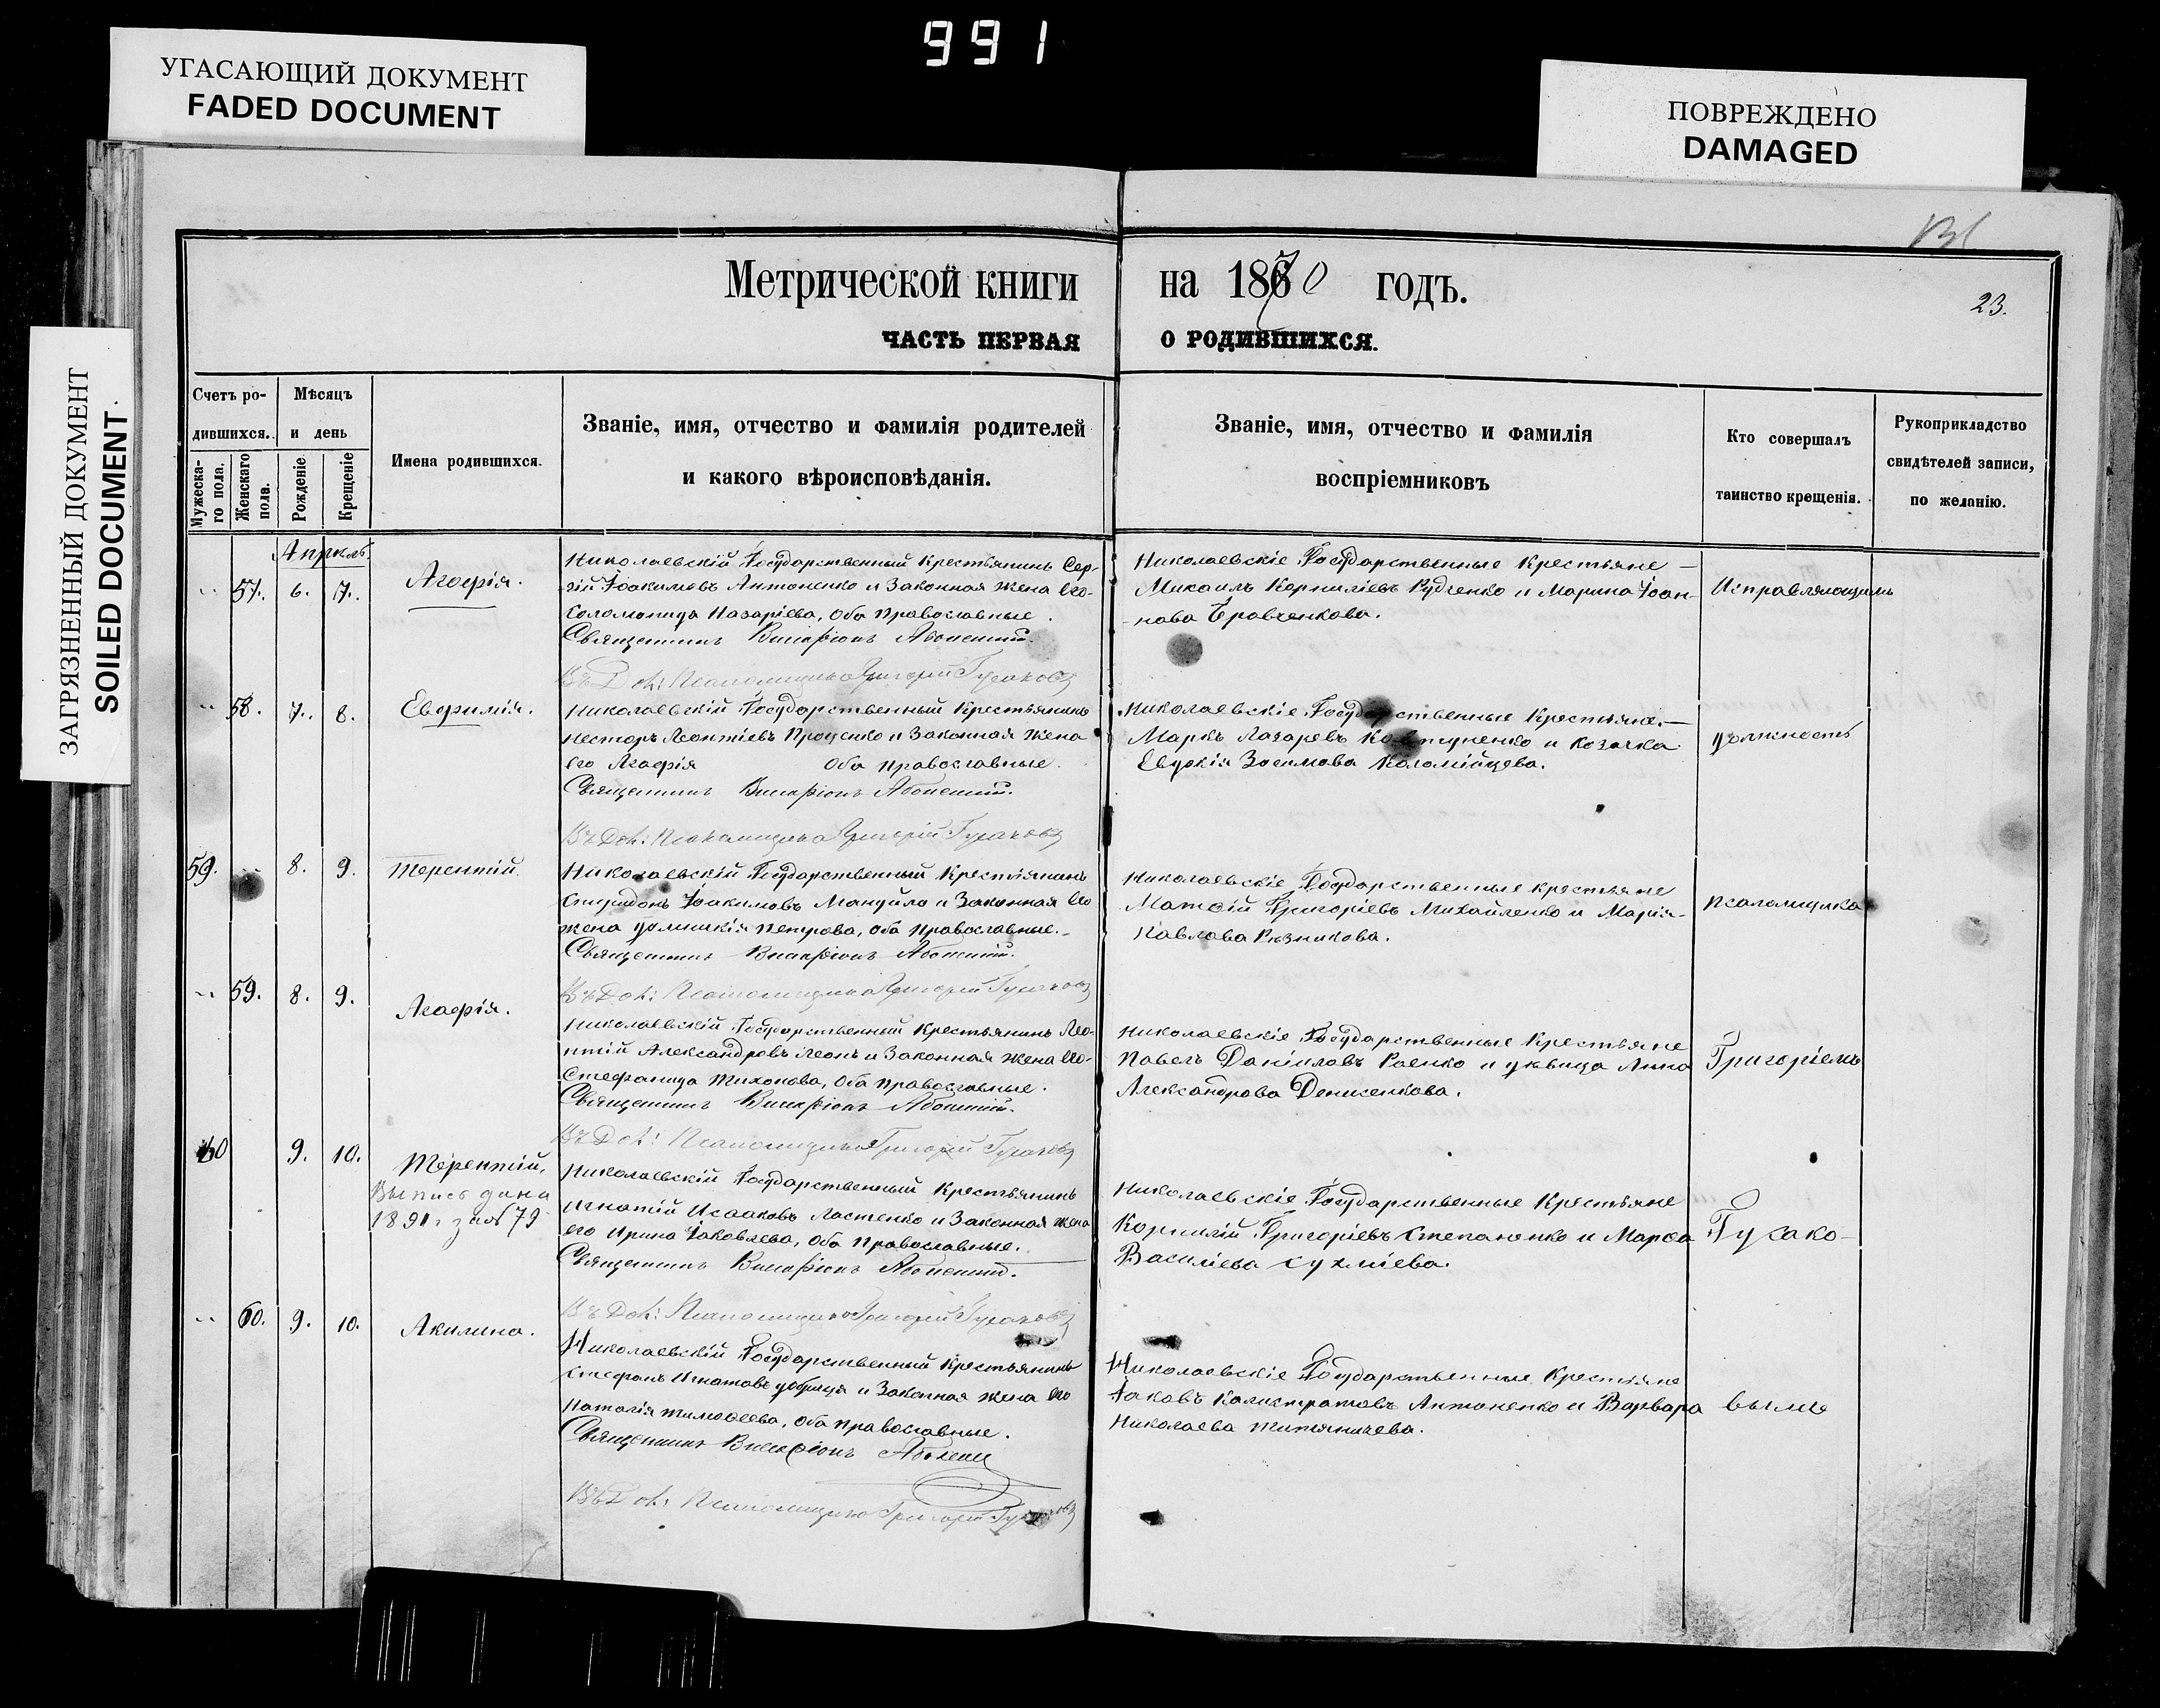 991
УГАСАЮЩИЙ ДОКУМЕНТ
FADED DOCUMENT
ПОВРЕЖДЕНО
DAMAGED
ЗАГРЯЗНЕННЫЙ ДОКУМЕНТ
SOILED DOCUMENT.
Метрической книги на 1870 годъ.
23.
ЧАСТЬ ПЕРВАЯ О РОДИВШИХСЯ.
Счетъ ро-
дившихся.
Мужеска-
го пола.
Женскаго
пола.
Мѣсяцъ
и день
Рожденіе.
Крещеніе
Имена родившихся.
Званіе, имя, отчество и фамилія родителей
и какого вѣроисповѣданія.
Званіе, имя, отчество и фамилія
воспріемниковъ
Кто совершалъ
таинство крещенія.
Рукоприкладство
свидѣтелей записи,
по желанію.
Апрѣль
57. 6. 7. Агафія.
Николаевскій Государственный Крестьянинъ Сер-
гій Іоакимовъ Антоненко и Законная жена его
Соломонида Назаріева, Оба православные.
Священникъ Виссаріонъ
Въ Дол: Псаломщика Григорій Гусаковъ
Николаевскіе Государственные Крестьяне
Михаилъ Корниліевъ Рудченко и Марина Іоан-
нова Кравченкова.
Исправляющимъ
58. 7. 8. Евфимія.
Николаевскій Государственный Крестьянинъ
Несторъ Леонтіевъ Проценко и Законная жена
его Агафія Оба православные.
Священникъ Виссаріонъ
Въ Дол: Псаломщика Григорій Гусаковъ
Николаевскіе Государственные Крестьяне
Маркъ Лазаревъ и козачка
Евдокія Зосимова Коломійцева.
должность
59. 8. 9. Терентій.
Николаевскій Государственный Крестьянинъ
Спиридонъ Іоакимовъ Мануйло и Законная его
жена Петрова, оба православные.
Священникъ Виссаріонъ
Въ Дол: Псаломщика Григорій Гусаковъ
Николаевскіе Государственные крестьяне
Матѳій Григоріевъ Михайленко и Марія
Павлова Рѣзникова.
псаломщика
59. 8. 9. Агафія.
Николаевскій Государственный Крестьянинъ Лео-
нтій Александровъ Леонъ и Законная жена его
Стефанида Тихонова, Оба православные.
Священникъ Виссаріонъ
Въ Дол: Псаломщика Григорій Гусаковъ
Николаевскіе Государственные Крестьяне
Павелъ Даніиловъ Раенко и дѣвица Анна
Александрова Денисенкова.
Григоріемъ
60 9. 10. Терентій,
Выпись дана
1891 г за № 79
Николаевскій Государственный Крестьянинъ
Игнатій Исааковъ Ластенко и Законная жена
его Ирина Іаковлева, Оба православные.
Священникъ Виссаріонъ
Въ Дол: Псаломщика Григорій Гусаковъ
Николаевскіе Государственные Крестьяне
Корнилій Григоріевъ Степаненко и Марѳа
Василіева Сухміева.
Гусако-
60. 9. 10. Акилина.
Николаевскій Государственный Крестьянинъ
Стефанъ Игнатовъ и Законная жена его
Наталія Тимоѳеева, оба православные.
Священникъ Виссаріонъ
Въ Дол: Псаломщика Григорій Гусаковъ
Николаевскіе Государственные Крестьяне
Іаковъ Калистратовъ Антоненко и Варвара
Николаева
вымъ